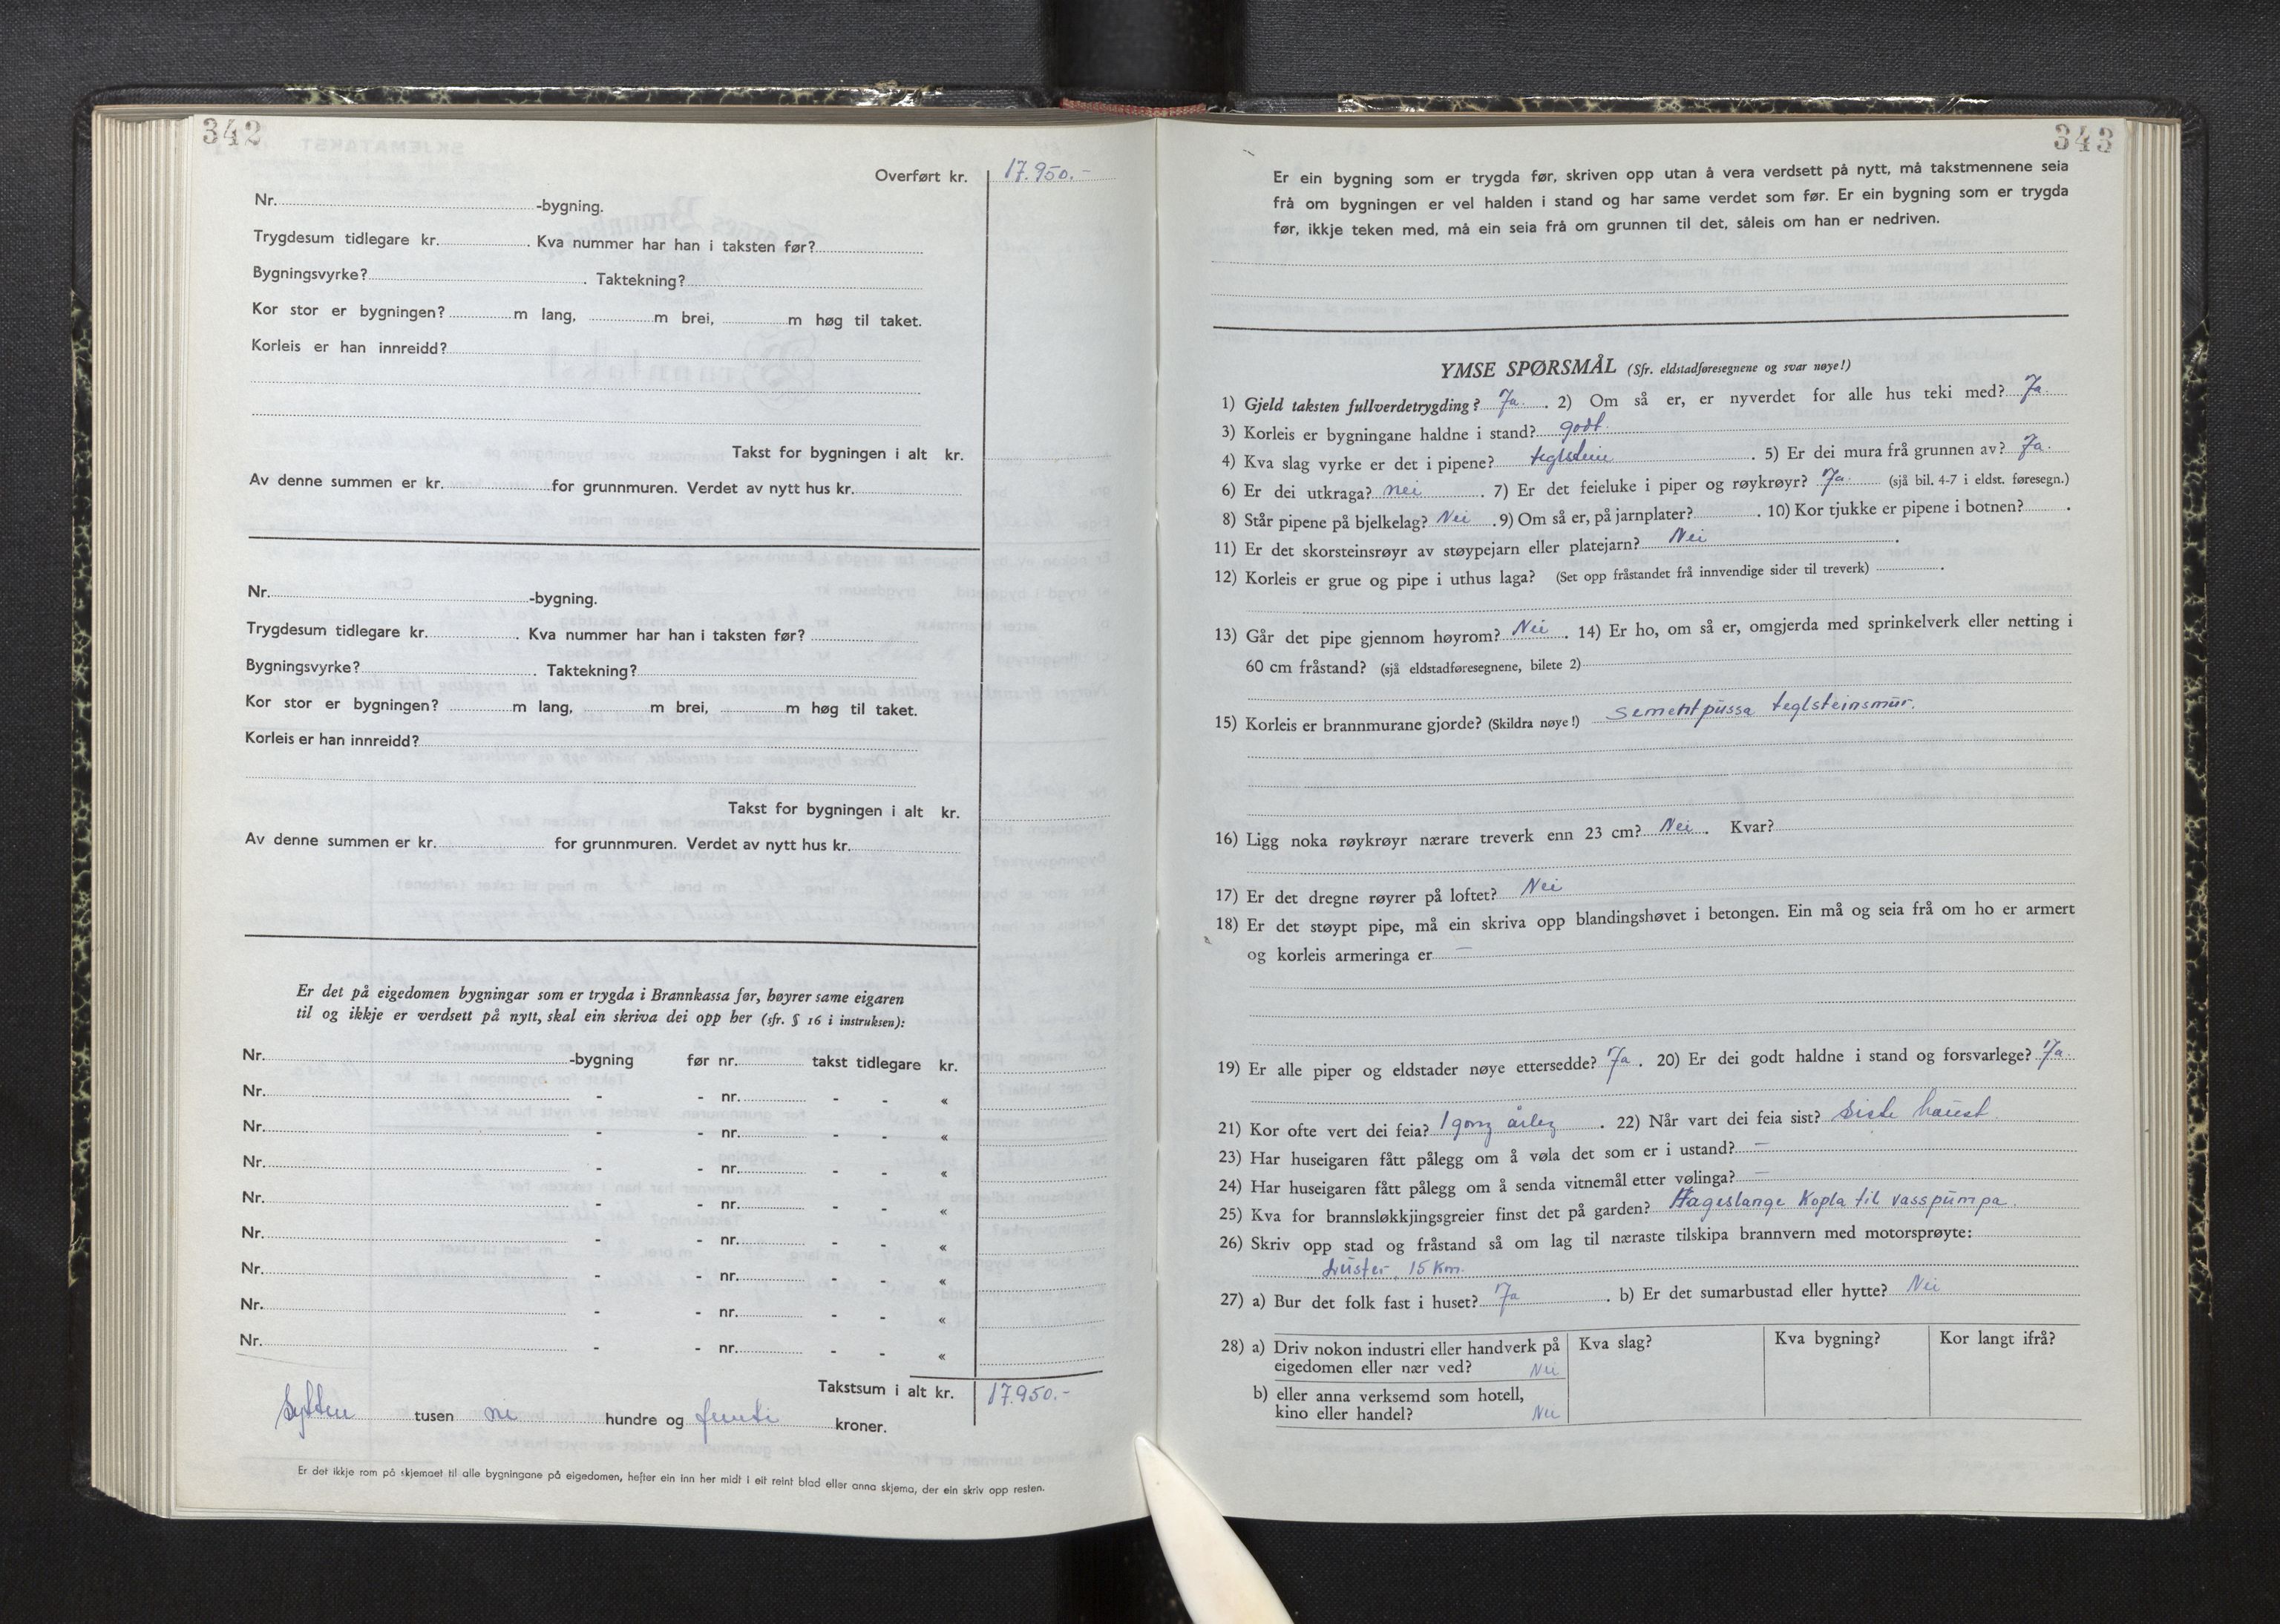 342
Overført kr. 17.950.-
Nr. -bygning.
Trygdesum tidlegare kr. . Kva nummer har han i taksten før?
Bygningsvyrke? . Taktekning?
Kor stor er bygningen? m lang, m brei, m høg til taket.
Korleis er han innreidd?
Takst for bygningen i alt kr.
Av denne summen er kr. for grunnmuren. Verdet av nytt hus kr.
Nr. -bygning.
Trygdesum tidlegare kr. . Kva nummer har han i taksten før?
Bygningsvyrke? . Taktekning?
Kor stor er bygningen? m lang, m brei, m høg til taket.
Korleis er han innreidd?
Takst for bygningen i alt kr.
Av denne summen er kr. for grunnmuren. Verdet av nytt hus kr.
Er det på eigedomen bygningar som er trygda i Brannkassa før, høyrer same eigaren
til og ikkje er verdsett på nytt, skal ein skriva dei opp her (sfr. § 16 i instruksen):
Nr. -bygning før nr. takst tidlegare kr.
Nr. - - nr. - - «
Nr. - - nr. - - «
Nr. - - nr. - - «
Nr. - - nr. - - «
Nr. - - nr. - - «
Nr. - - nr. - - «
Nr. - - nr. - - «
Nr. - - nr. - - «
Takstsum i alt kr. 17.950.-
Sytten tusen ni hundre og femti kroner.
Er det ikkje rom på skjemaet til alle bygningane på eigedomen, hefter ein inn her midt i eit reint blad eller anna skjema, der ein skriv opp resten.
343
Er ein bygning som er trygda før, skriven opp utan å vera verdsett på nytt, må takstmennene seia
frå om bygningen er vel halden i stand og har same verdet som før. Er ein bygning som er trygda
før, ikkje teken med, må ein seia frå om grunnen til det, såleis om han er nedriven.
YMSE SPØRSMÅL (Sfr. eldstadføresegnene og svar nøye!)
1) Gjeld taksten fullverdetrygding? Ja. . 2) Om så er, er nyverdet for alle hus teki med? Ja.
3) Korleis er bygningane haldne i stand? godt.
4) Kva slag vyrke er det i pipene? teglstein . 5) Er dei mura frå grunnen av? Ja.
6) Er dei utkraga? nei . 7) Er det feieluke i piper og røykrøyr? Ja. (sjå bil. 4-7 i eldst. føresegn.)
8) Står pipene på bjelkelag? Nei . 9) Om så er, på jarnplater? . 10) Kor tjukke er pipene i botnen? .
11) Er det skorsteinsrøyr av støypejarn eller platejarn? Nei .
12) Korleis er grue og pipe i uthus laga? (Set opp fråstandet frå innvendige sider til treverk) .
13) Går det pipe gjennom høyrom? Nei . 14) Er ho, om så er, omgjerda med sprinkelverk eller netting i
60 cm fråstand? (sjå eldstadføresegnene, bilete 2)
15) Korleis er brannmurane gjorde? (Skildra nøye!) sementpussa teglsteinsmur.
16) Ligg noka røykrøyr nærare treverk enn 23 cm? Nei . Kvar?
17) Er det dregne røyrer på loftet? Nei
18) Er det støypt pipe, må ein skriva opp blandingshøvet i betongen. Ein må og seia frå om ho er armert
og korleis armeringa er —
19) Er alle piper og eldstader nøye ettersedde? Ja . 20) Er dei godt haldne i stand og forsvarlege? Ja.
21) Kor ofte vert dei feia? 1 gong årleg . 22) Når vart dei feia sist? Siste haust.
23) Har huseigaren fått pålegg om å vøla det som er i ustand? —
24) Har huseigaren fått pålegg om å senda vitnemål etter vølinga? —
25) Kva for brannsløkkjingsgreier finst det på garden? Hageslange kopla til vasspumpa.
26) Skriv opp stad og fråstand så om lag til næraste tilskipa brannvern med motorsprøyte:
Luster, 15 km.
27) a) Bur det folk fast i huset? Ja . b) Er det sumarbustad eller hytte? Nei
28) a) Driv nokon industri eller handverk på Kva slag? Kva bygning? Kor langt ifrå?
eigedomen eller nær ved? Nei
b) eller anna verksemd som hotell,
kino eller handel? Nei